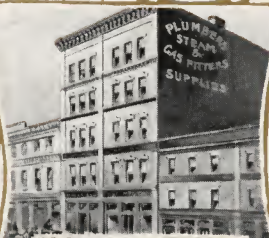 PLUMBERS
STEAM
&
GAS FITTERS
SUPPLIES